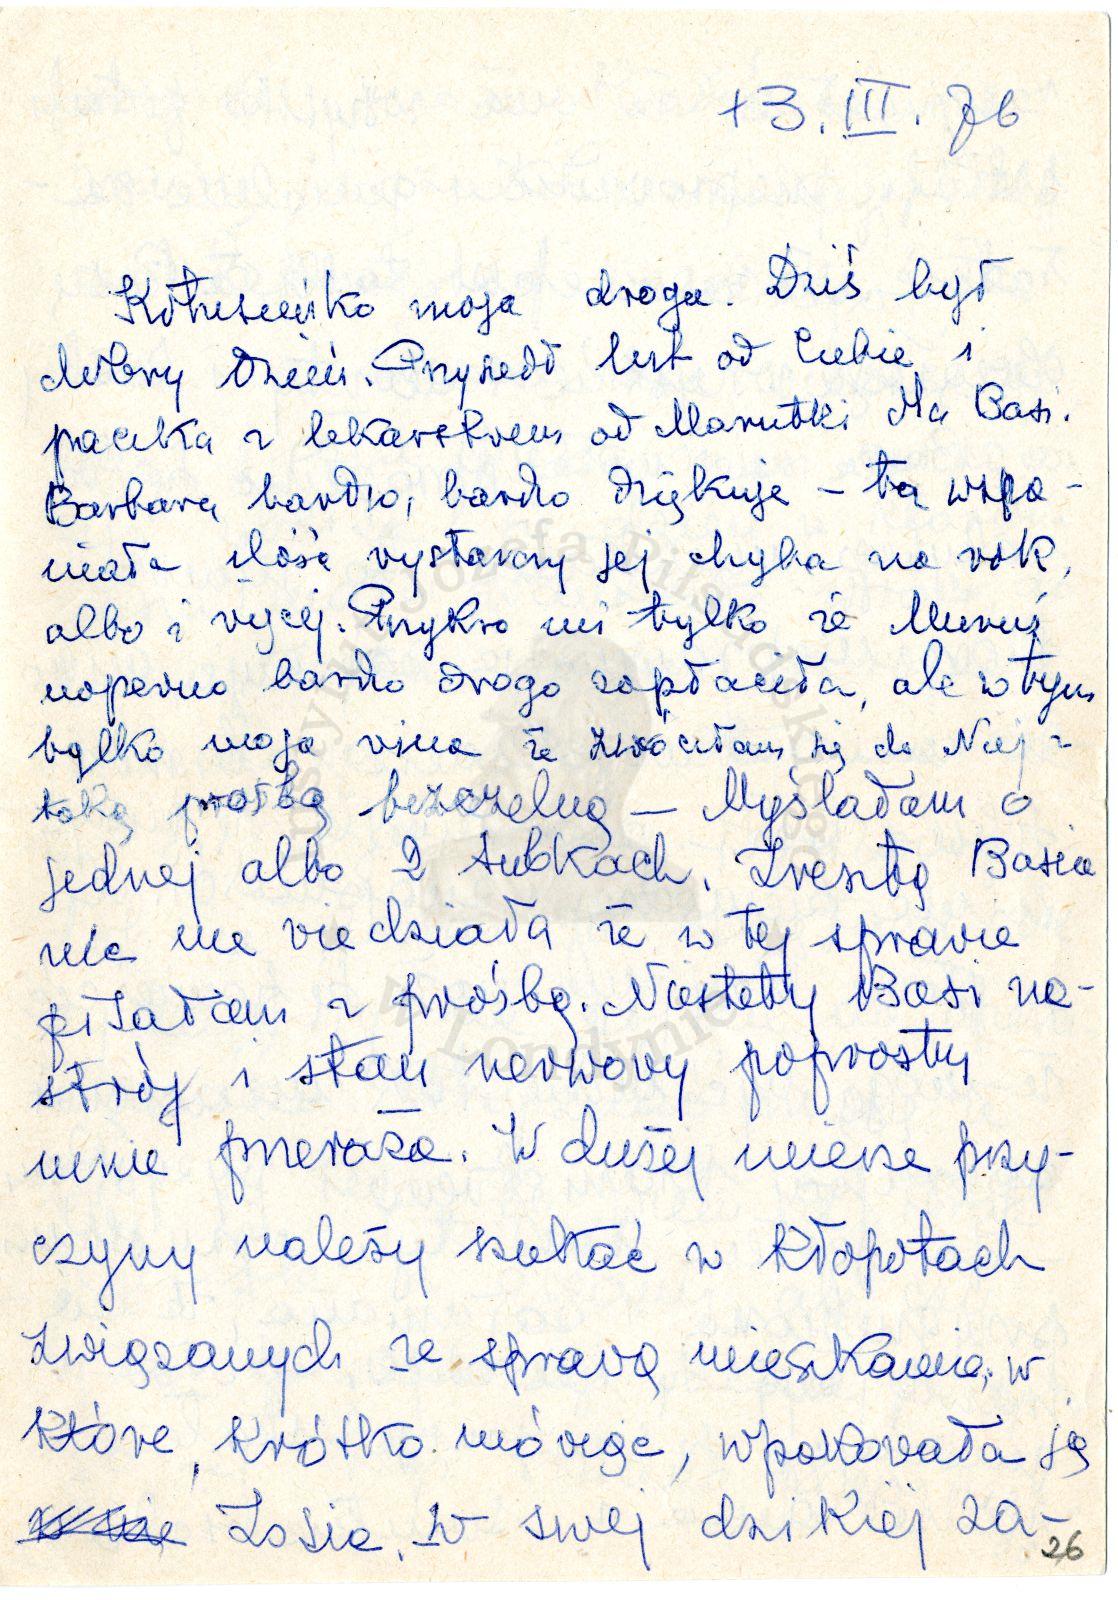 13.III.76
Kłuseńko moja droga. Dziś był
dobry dzień. Przyszedł list od Ciebie i
paczka z lekarstwem od Marutki dla Basi.
Barbara bardzo, bardzo dziękuje – ta wspa-
niała ilość wystarczy jej chyba na rok,
albo i więcej. Przykro mi tylko że
napewno bardzo drogo zapłaciła, ale w tym
tylko moja wina że zwróciłam się do Niej z
taką prośbą bezczelną – Myślałam o
jednej albo 2 tubkach. Zresztą Basia
nic nie wiedziała że w tej sprawie
pisałam z prośbą. Niestety Basi na-
strój i stan nerwowy poprostu
mnie przeraża. W dużej mierze przy-
czyny należy szukać w kłopotach
związanych ze sprawą mieszkania, w
które, krótko mówiąc, wpakowała ją
Zosia. W swej dzikiej za-
26
Instytut Józefa Piłsudskiego
w Londynie